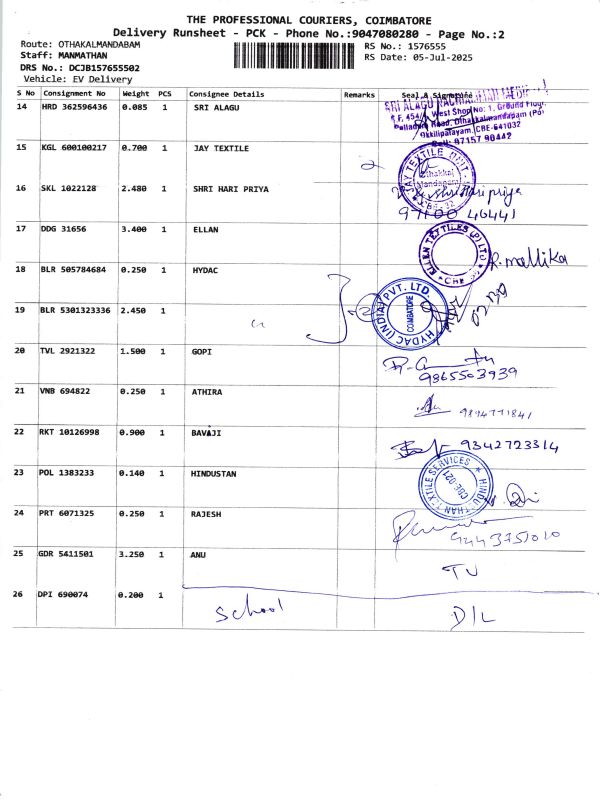 THE PROFESSIONAL COURIERS, COIMBATORE
Delivery Runsheet - PCK - Phone No.:9047080280 - Page No.:2
Route: OTHAKALMANDABAM
RS No.: 1576555
Staff: MANMATHAN
RS Date: 05-Jul-2025
DRS No.: DCJB157655502
Vehicle: EV Delivery
S No Consignment No Weight PCS Consignee Details Remarks Seal & Signature
14 HRD 362596436 0.085 1 SRI ALAGU
West Shop No: 1, Ground Floor
Road, Othakkalmandapam (Po)
Okkilipalayam, CBE-641032
Cell: 97157 90442
15 KGL 600100217 0.700 1 JAY TEXTILE
JAY TEXTILE UNIT
16 SKL 1022128 2.480 1 SHRI HARI PRIYA
Shri Hari priya
97100 46441
17 DDG 31656 3.400 1 ELLAN
ELLEN TEXTILES (P) LTD
R. mallika
18 BLR 505784684 0.250 1 HYDAC
HYDAC (INDIA) PVT. LTD.
COIMBATORE
19 BLR 5301323336 2.450 1
20 TVL 2921322 1.500 1 GOPI
9865503939
21 VNB 694822 0.250 1 ATHIRA
22 RKT 10126998 0.900 1 BAVAJI
9342723314
23 POL 1383233 0.140 1 HINDUSTAN
HINDUSTHAN TEXTILE SERVICES
CBE-021
24 PRT 6071325 0.250 1 RAJESH
9443751010
25 GDR 5411501 3.250 1 ANU
TU
26 DPI 690074 0.200 1 School D/L